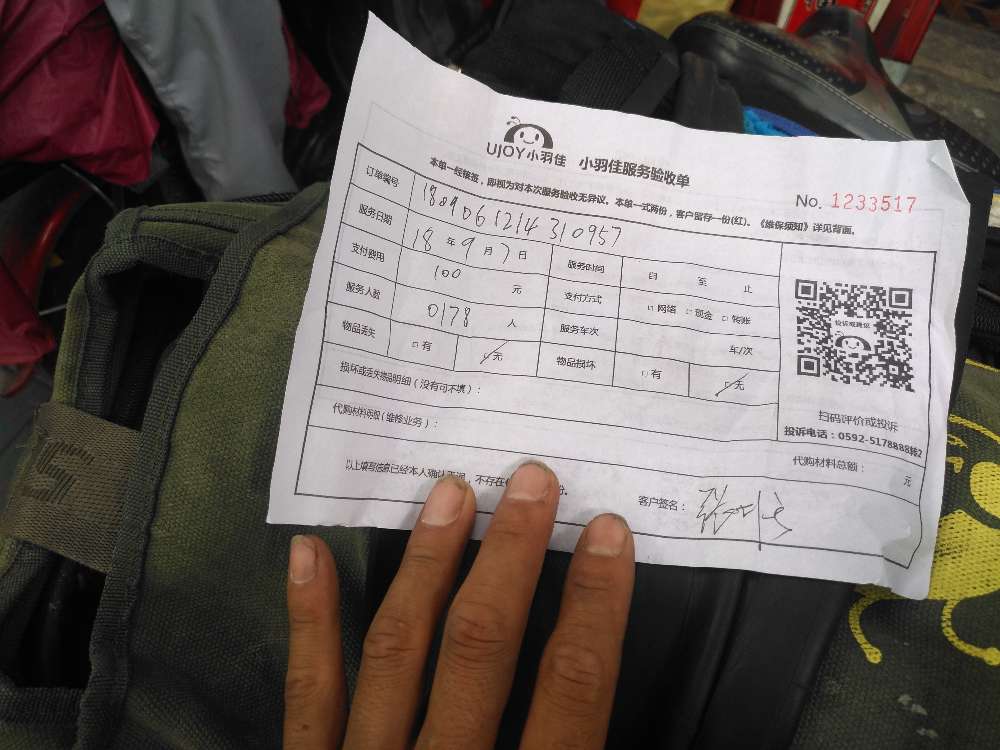 UJOY小羽佳 小羽佳服务验收单
No. 1233517
本单一经核签，即视为对本次服务验收无异议。本单一式两份，客户留存一份(红)。《维保须知》详见背面。
订单编号 1809061214310957
服务日期 18年9月7日 服务时间 自 至 止
支付费用 100元 支付方式 □网络 □现金 □转账
服务人数 0178人 服务车次 车/次
物品丢失 □有 □无 物品损坏 □有 □无
投诉或建议
扫码评价或投诉
投诉电话：0592-5178888转2
损坏或丢失物品明细（没有可不填）：
代购材料明细（维修业务）：
代购材料总额： 元
以上填写信息已经本人确认 ，不存在
客户签名：